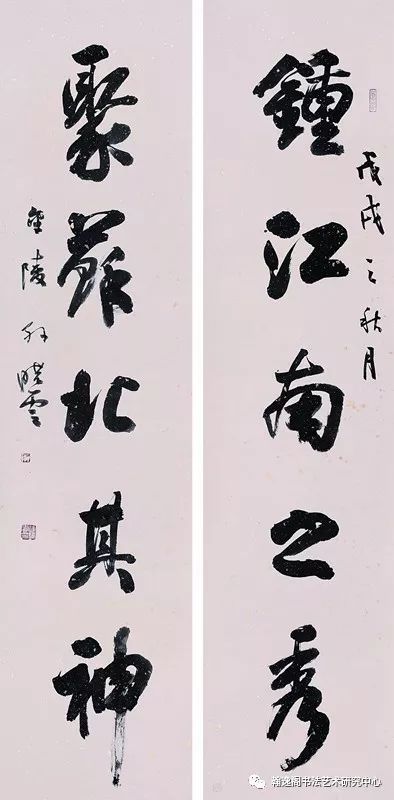 丙戌之秋月
鍾江南之秀
聚蘇北其神
金陵孙晓雲
翰逸阁书法艺术研究中心